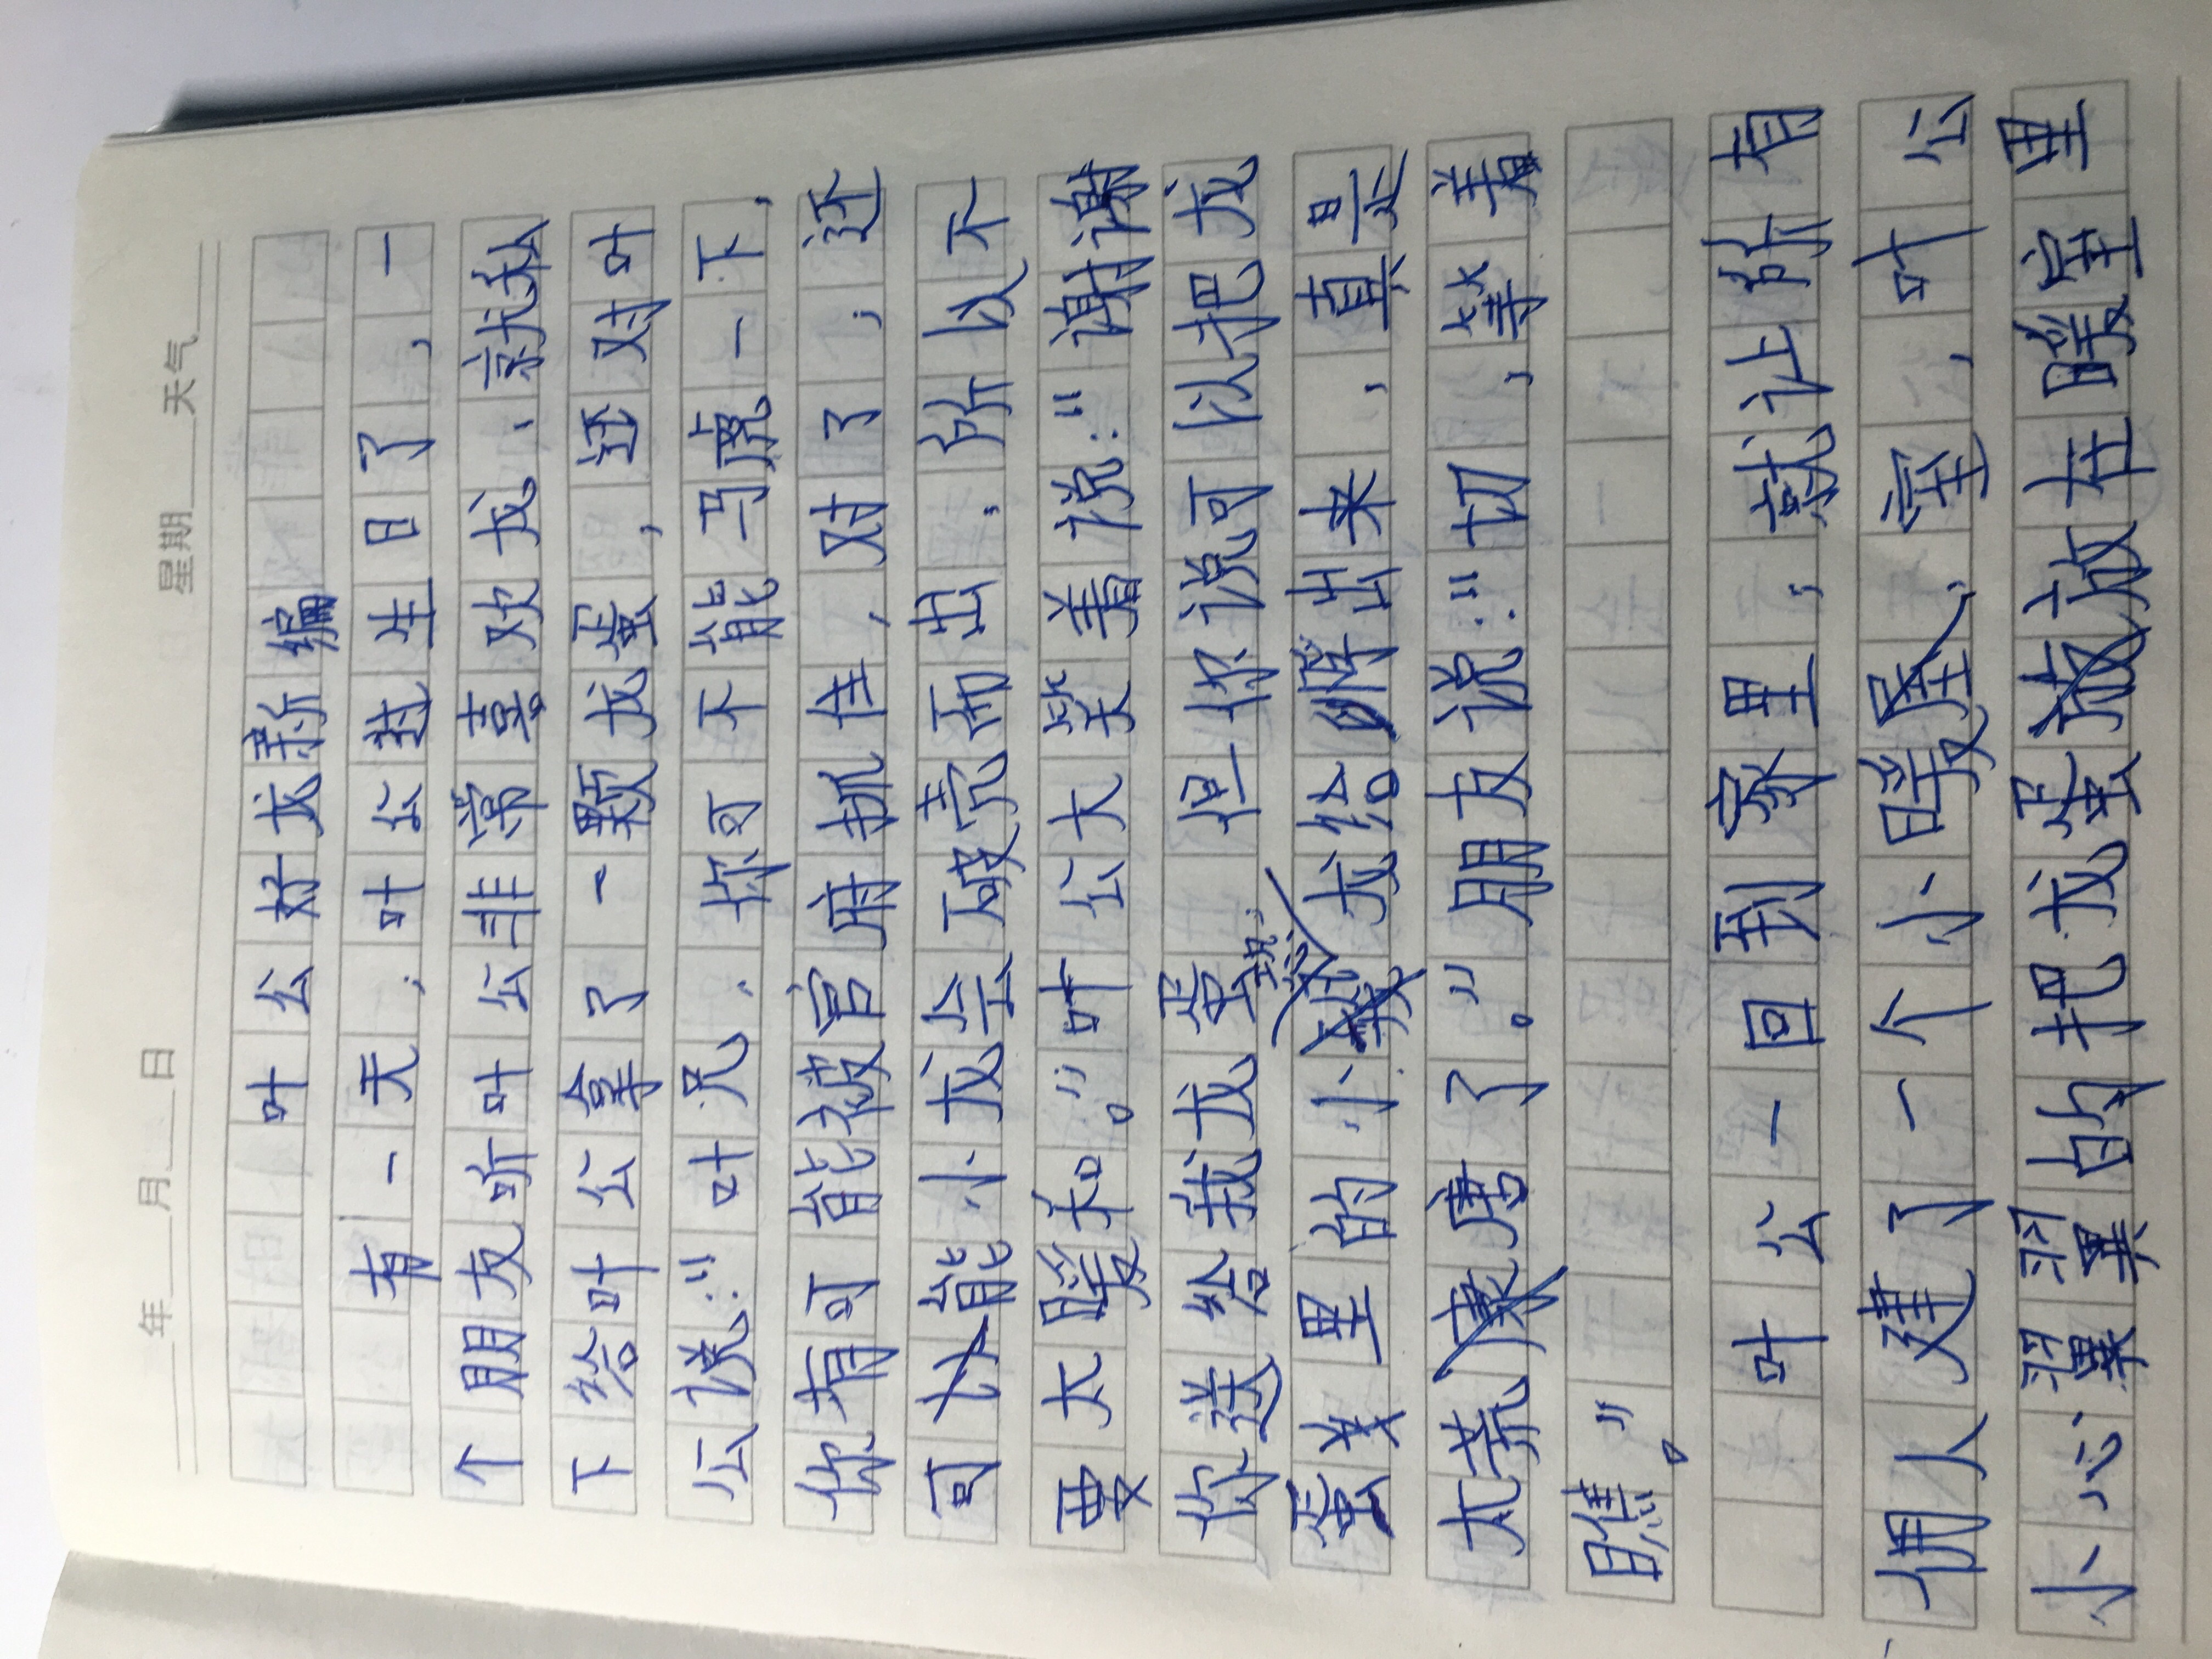 年 月 日 星期 天气
叶公好龙新编
有一天,叶公过生日了,一
个朋友听叶公非常喜欢龙,就私
下给叶公拿了一颗龙蛋,还对叶
公说:“叶兄,你可不能马虎一下,
你有可能被官府抓住,对了,还
可能小龙会破壳而出,所以不
要太暖和。”叶公大笑着说:“谢谢
你送给我龙蛋 但你说可以把龙
蛋里的小龙给孵出来,真是
太荒唐了。”朋友说:“切,等着
瞧。”
叶公一回到家里,就让所有
佣人建了一个小暖室,叶公
小心翼翼的把龙蛋放在暖室里